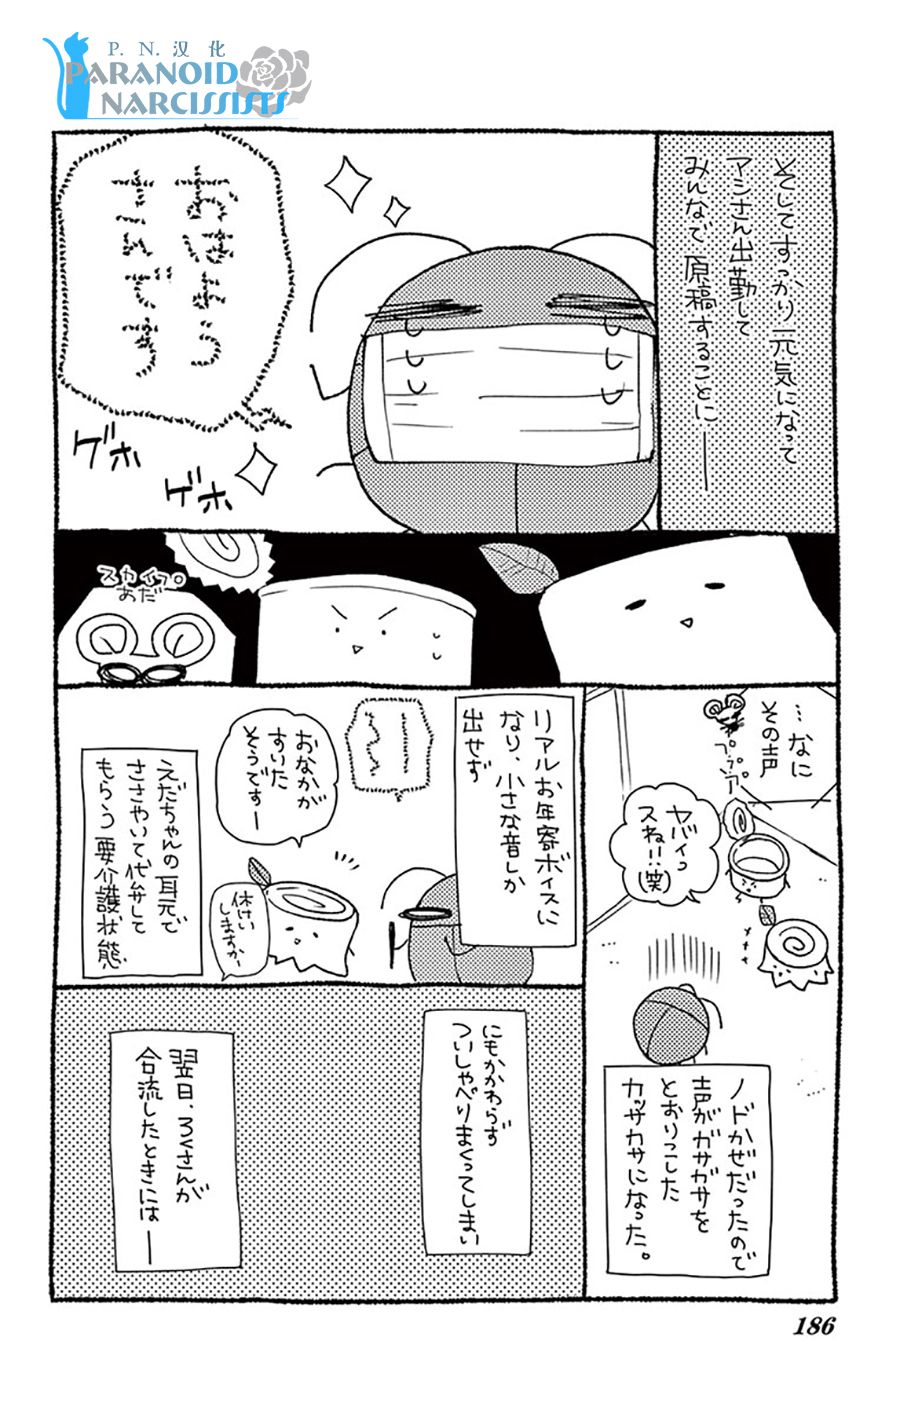 P. N. 汉 化
PARANOID
NARCISSISTS
そしてすっかり元気になって
アシさん出勤して
みんなで原稿することに――
おはよう
さんでう
ゲホ
ゲホ
スカイプ
あだ
…なに
その声
プププ
ヤバイっ
スね!!
(笑)
ノドかぜだったので
声がガサガサを
とおりこした
カッサカサになった。
リアルお年寄ボイスに
なり、小さな音しか
出せず
おなかが
すいた
そうですー
休けい
しますか
えだちゃんの耳元で
ささやいて代弁して
もらう要介護状態
にもかかわらず
ついしゃべりまくってしまい
翌日、ろくさんが
合流したときには――
186